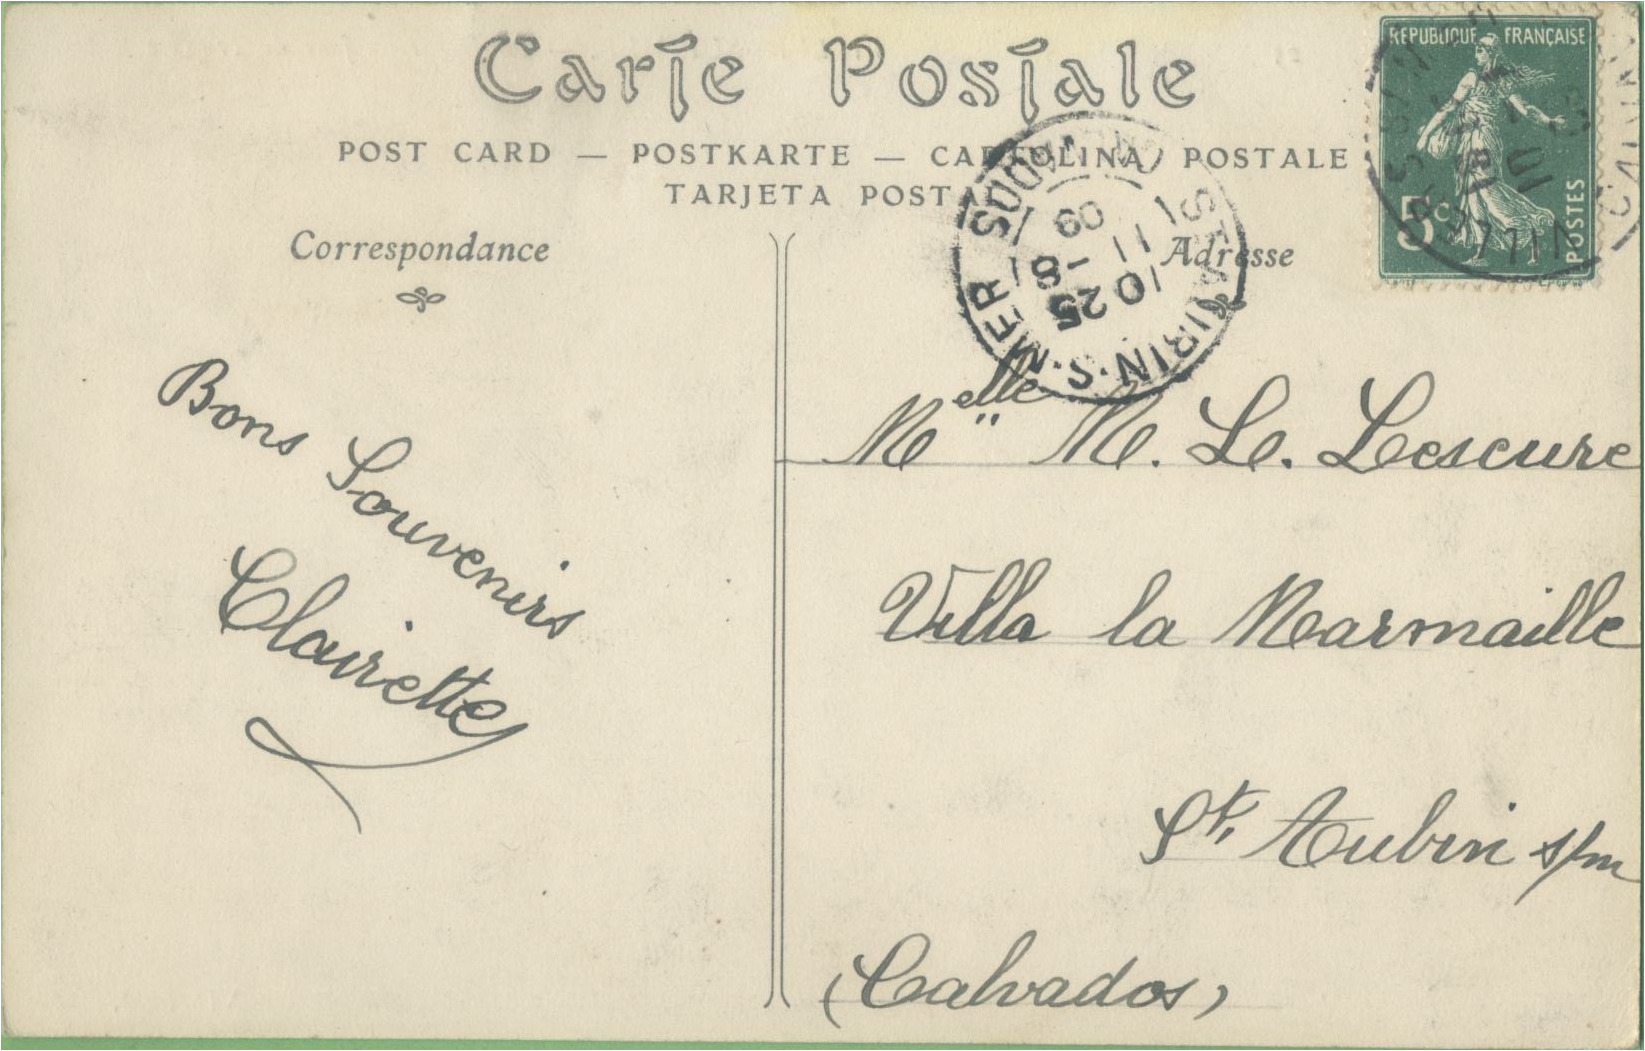 Carte Postale
POST CARD — POSTKARTE — CARTOLINA POSTALE
TARJETA POSTAL
Correspondance
Adresse
REPUBLIQUE FRANÇAISE
5c
POSTES
ST AUBIN-S-MER
CALVADOS
10 25
11 - 8
09
Bons Souvenirs
Clairette
Melle M. L. Lescure
Villa la Marmaille
St. Aubin s/m
(Calvados)